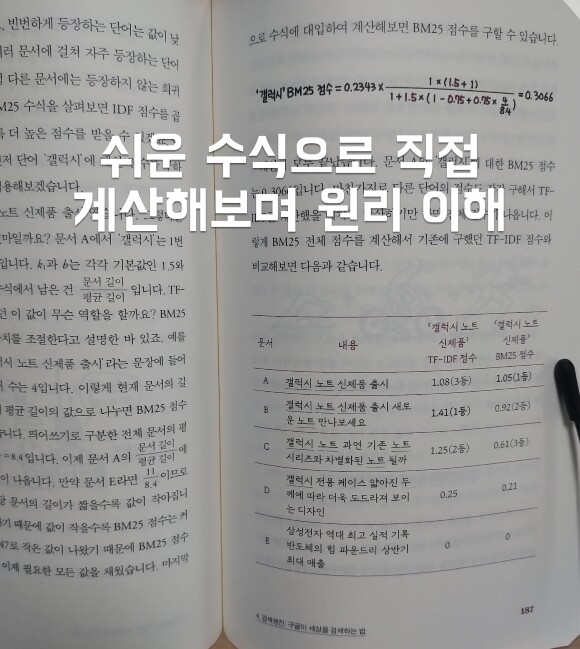 빈번하게 등장하는 단어는 값이 낮
러 문서에 걸쳐 자주 등장하는 단어
다른 문서에는 등장하지 않는 희귀
수식을 살펴보면 IDF 점수를 곱
더 높은 점수를 받을 수
단어 '갤럭시'에
노트 신제품
마일까요? 문서 A에서 '갤럭시'는 1번
입니다. k₁과 b는 각각 기본값인 1.5와
수식에서 남은 건 문서 길이/평균 길이 입니다. TF-
이 값이 무슨 역할을 할까요? BM25
치를 조절한다고 설명한 바 있죠. 예를
노트 신제품 출시'라는 문장에 들어
수는 4입니다. 이렇게 현재 문서의 길
평균 길이의 값으로 나누면 BM25 점수
니다. 띄어쓰기로 구분한 전체 문서의 평
=8.4입니다. 이제 문서 A의 문서 길이/평균 길이 에
이 나옵니다. 만약 문서 E라면 11/8.4 이므로
문서의 길이가 짧을수록 값이 작아집니
기 때문에 값이 작을수록 BM25 점수는 커
47로 작은 값이 나왔기 때문에 BM25 점수
이제 필요한 모든 값을 채웠습니다. 마지막
으로 수식에 대입하여 계산해보면 BM25 점수를 구할 수 있습니다.
'갤럭시' BM25 점수 = 0.2343 × 1×(1.5+1) / 1+1.5×(1-0.75+0.75× 4/8.4) = 0.3066
쉬운 수식으로 직접
계산해보며 원리 이해
대한 BM25 점수
구해서 TF-
나옵니다. 이
렇게 BM25 전체 점수를 계산해서 기존에 구했던 TF-IDF 점수와
비교해보면 다음과 같습니다.
문서 내용 '갤럭시 노트 신제품' TF-IDF 점수 '갤럭시 노트 신제품' BM25 점수
A 갤럭시 노트 신제품 출시 1.08(3등) 1.05(1등)
B 갤럭시 노트 신제품 출시 새로 1.41(1등) 0.92(2등)
운 노트 만나보세요
C 갤럭시 노트 과연 기존 노트 1.25(2등) 0.61(3등)
시리즈와 차별화된 노트 될까
D 갤럭시 전용 케이스 얇아진 두 0.25 0.21
께에 따라 더욱 도드라져 보이
는 디자인
E 삼성전자 역대 최고 실적 기록 0 0
반도체의 힘 파운드리 상반기
최대 매출
4. 검색엔진: 구글이 세상을 검색하는 법
187